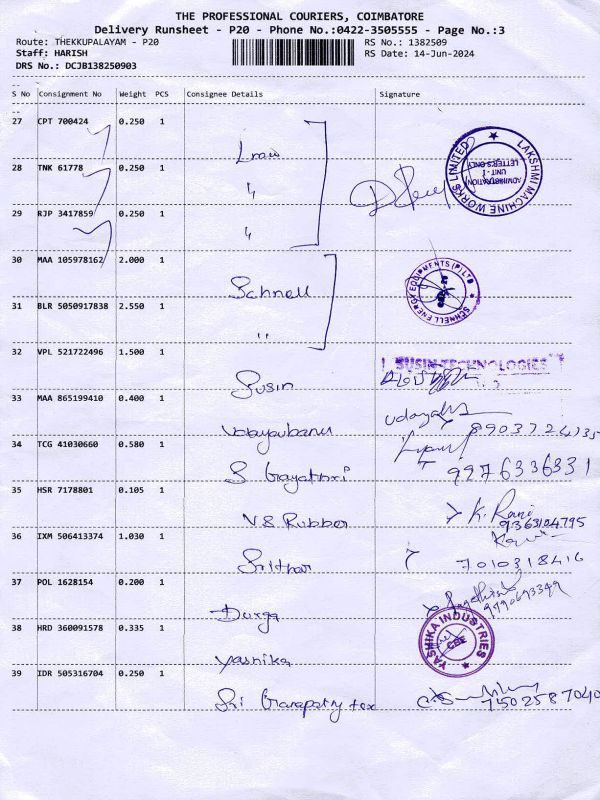 THE PROFESSIONAL COURIERS, COIMBATORE
Delivery Runsheet - P20 - Phone No.:0422-3505555 - Page No.:3
Route: THEKKUPALAYAM - P20 RS No.: 1382509
Staff: HARISH RS Date: 14-Jun-2024
DRS No.: DCJB138250903
S No Consignment No Weight PCS Consignee Details Signature
27 CPT 700424 0.250 1
LAKSHMI MACHINE WORKS LIMITED
ADMINISTRATION
UNIT - I
LETTERS ONLY
28 TNK 61778 0.250 1
29 RJP 3417859 0.250 1
30 MAA 105978162 2.000 1
Schnell
SCHNELL ENERGY EQUIPMENTS (P) LTD
31 BLR 5050917838 2.550 1
"
32 VPL 521722496 1.500 1
SUSIN TECHNOLOGIES
Susin
33 MAA 865199410 0.400 1
Udayabanu
8903724135
34 TCG 41030660 0.580 1
S Gayathri
9976336331
35 HSR 7178801 0.105 1
VS Rubber K. Rani
9363104795
36 IXM 506413374 1.030 1
Srithar 7010318416
37 POL 1628154 0.200 1
Durga
38 HRD 360091578 0.335 1
YASHIKA INDUSTRIES
CBE
Yashika
39 IDR 505316704 0.250 1
Sri Ganapathy tex
7502587040